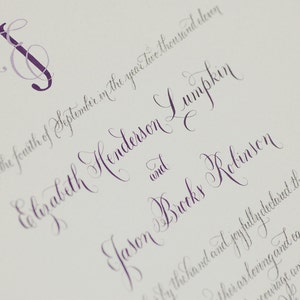 & J
the fourth of September in the year two thousand eleven
Elizabeth Henderson Lumpkin
and
Jason Brooks Robinson
by the hand and joyfully declared th
this as loving and
courage an